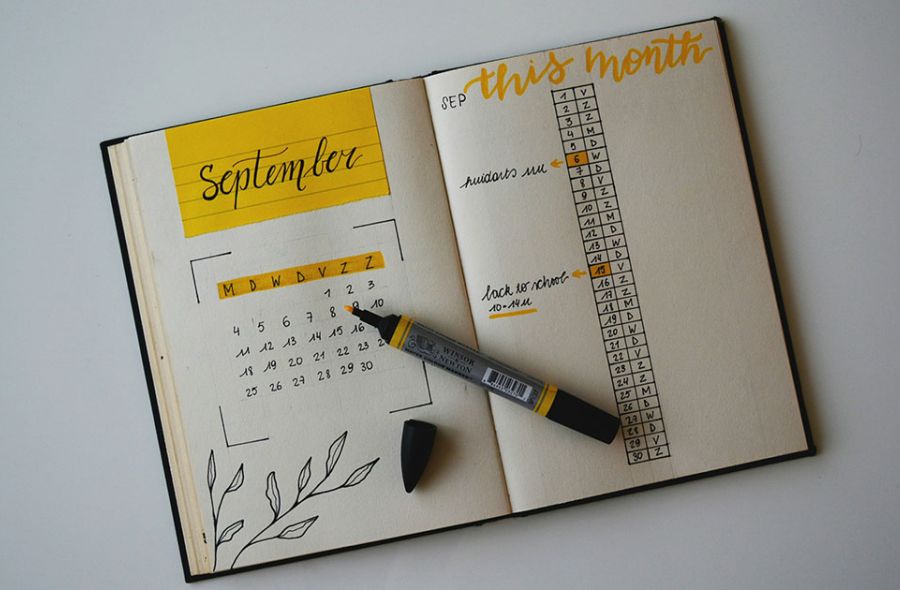 September
M D W D V Z Z
1 2 3
4 5 6 7 8 9 10
11 12 13 14 15 16
18 19 20 21 22 23
25 26 27 28 29 30
WINSOR
NEWTON
SEP this month
1 V
2 Z
3 Z
4 M
5 D
huidarts 6 W
7 D
8 V
9 Z
10 Z
11 M
12 D
13 W
14 D
back to school 15 V
10-14u
16 Z
17 Z
18 M
19 D
20 W
21 D
22 V
23 Z
24 Z
25 M
26 D
27 W
28 D
29 V
30 Z